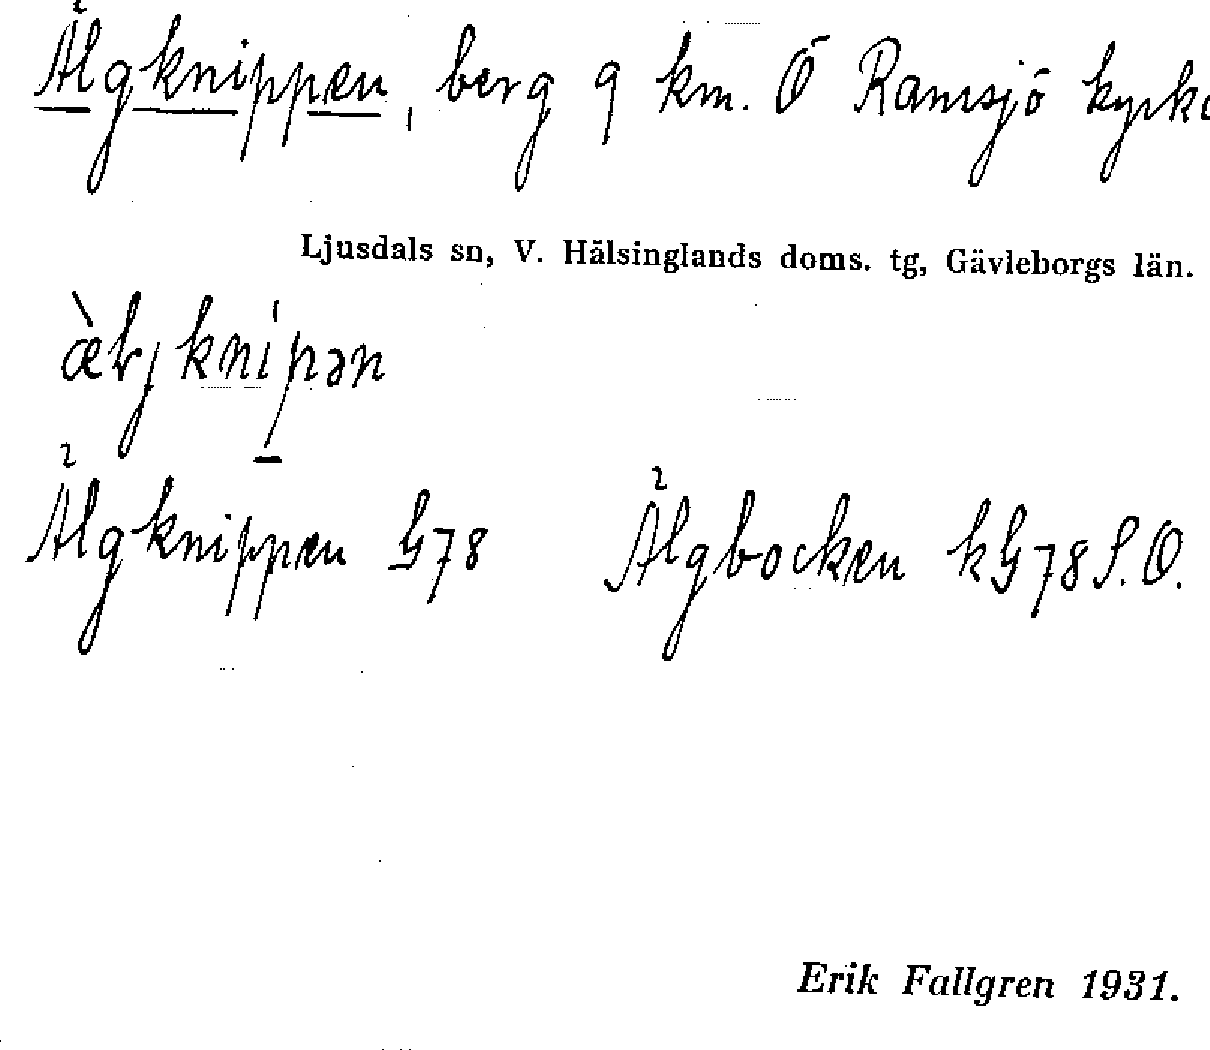 Älgknippen, berg 9 km. Ö Ramsjö kyrk
Ljusdals sn, V. Hälsinglands doms. tg, Gävleborgs län.
Älgknippen G78 Älgbocken kG78 S.O.
Erik Fallgren 1931.